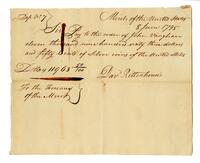 Mint of the United States
8 June 1795
Sir Pay to the order of John Vaughan
eleven thousand nine hundred and sixty three dollars
and fifty Cents of Silver coins of the United States
Dav Rittenhouse
To the Treasurer
of the Mint